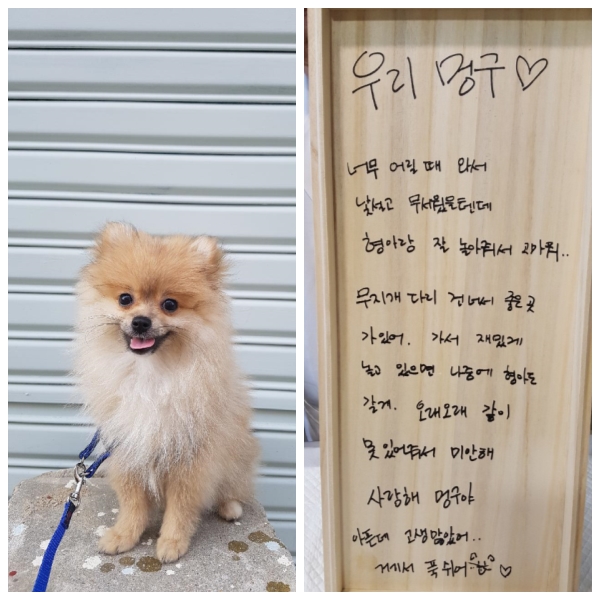 우리 멍구♡
너무 어릴 때 와서
낯설고 무서웠을텐데
형아랑 잘 놀아줘서 고마워..
무지개 다리 건너서 좋은 곳
가있어. 가서 재밌게
놀고 있으면 나중에 형아도
갈게. 오래오래 같이
못 있어줘서 미안해
사랑해 멍구야
아픈데 고생 많았어..
거기서 푹 쉬어 ♡